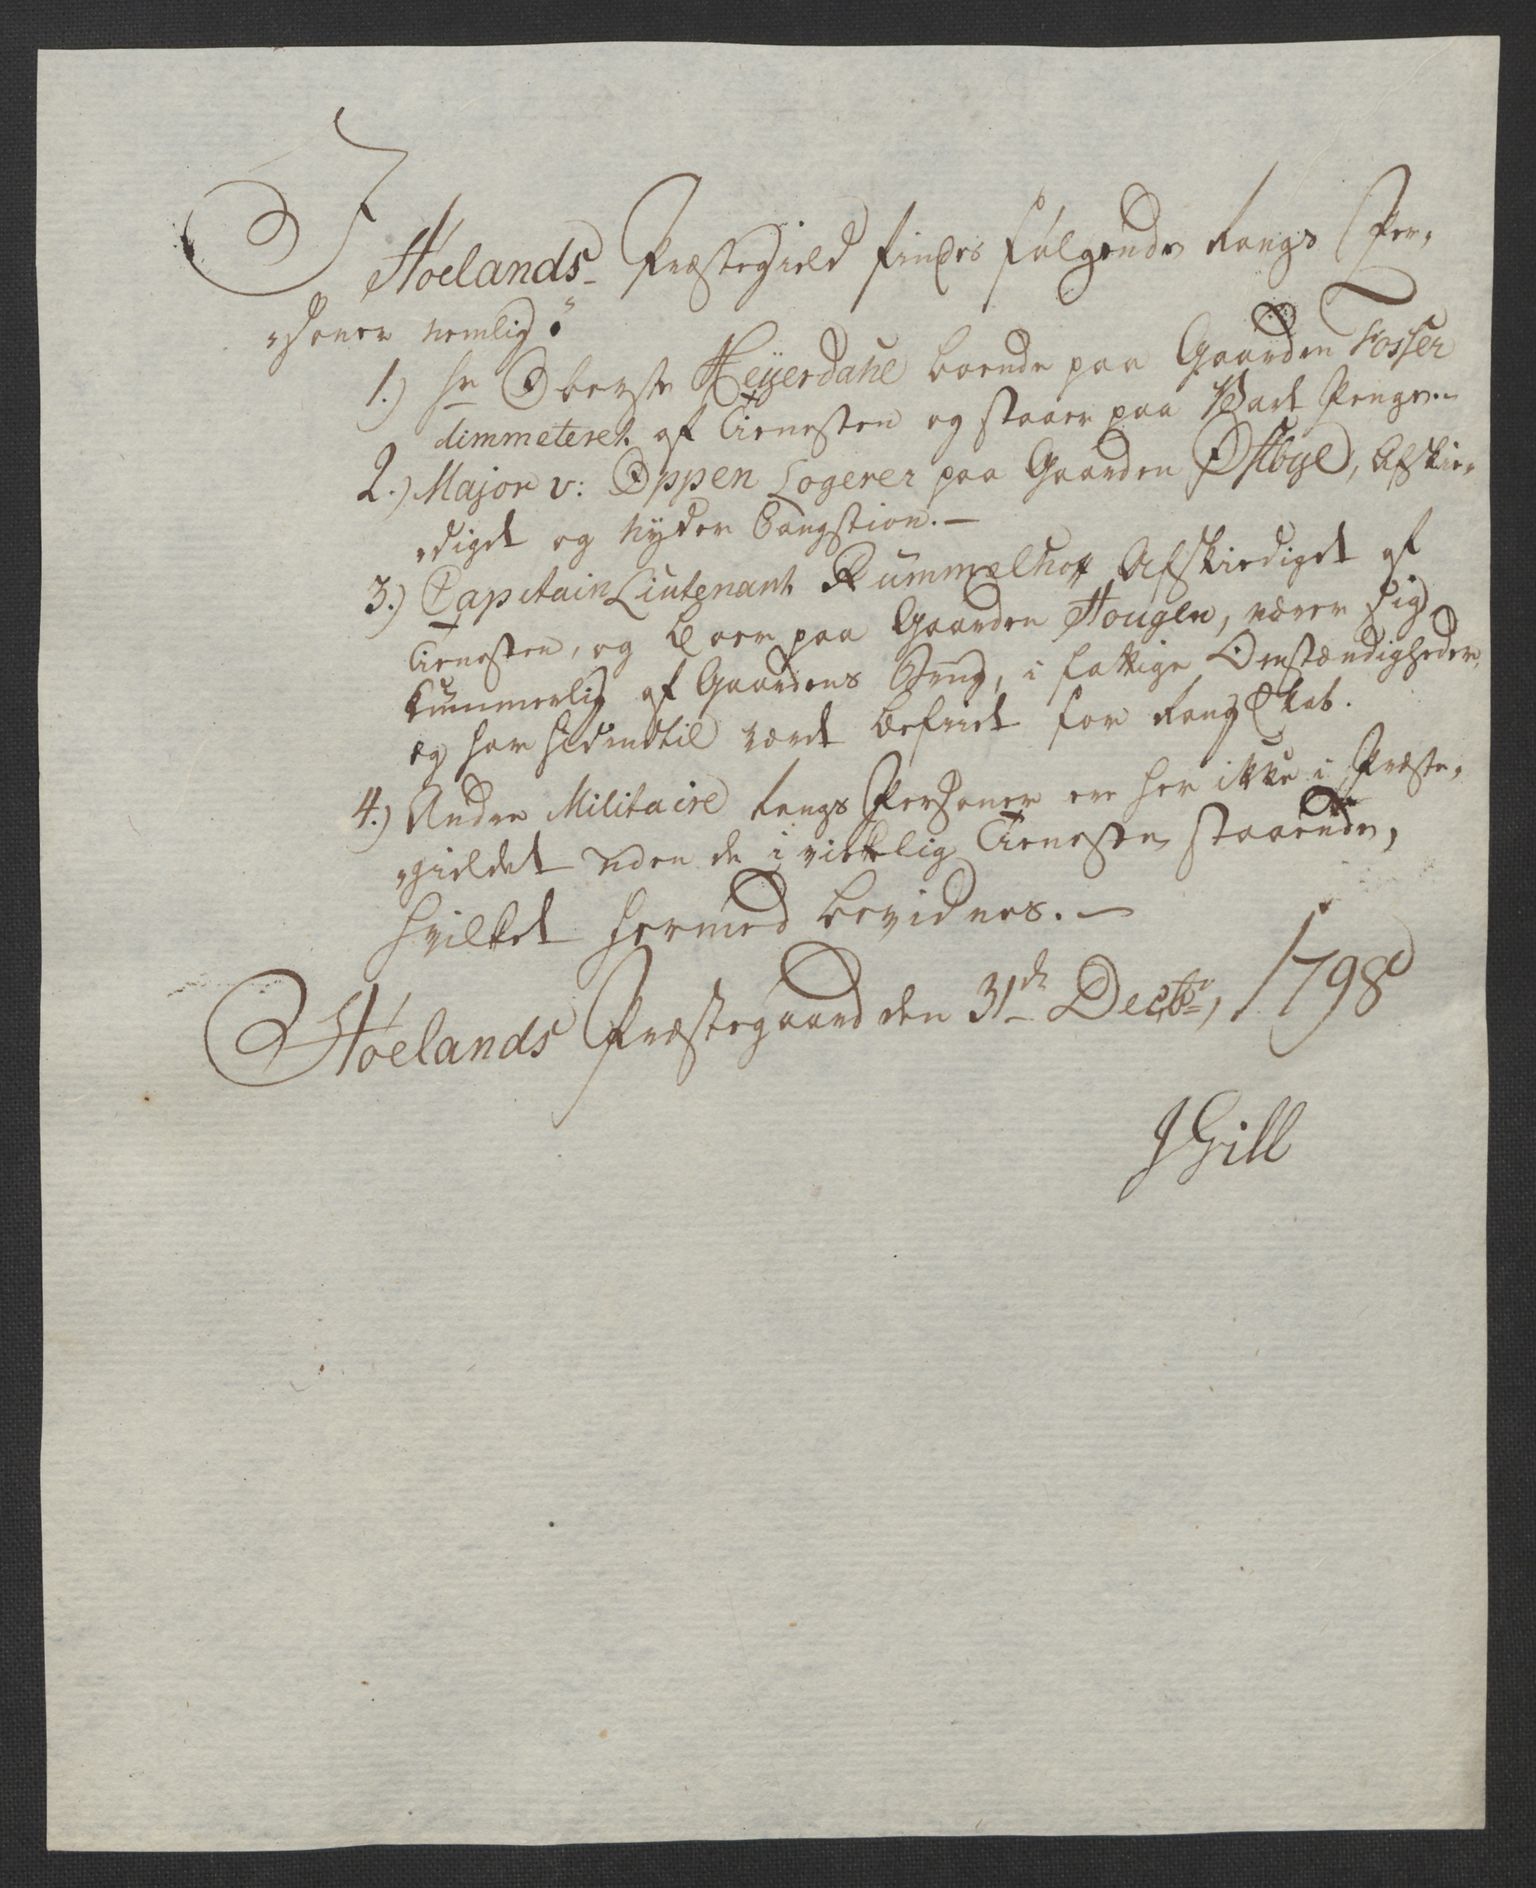 I Høelands Præstegield findes følgende Rangs Per,
"soner nemlig:
1.) Hr Oberste Heÿerdahl boende paa Gaarden Fosser
dimmeteret af Tienesten og staaer paa Vart Penge.-
2.) Major v: Oppen Logerer paa Gaarden Østbye, Afskie,
"diget og nyder Pangstion.-
3.) Capitain Liutenant Rummelhoff Afskiediget af
Tienesten, og boer paa Gaarden Hougen, nærer sig
kummerlig af Gaardens Brug, i fattige Omstændigheder
og har hidindtil været befriet for Rang Skat.
4.) Andre Militaire Rangs Personer ere her ikke i Præste,
"gieldet uden de i virkelig Tieneste staaende,
hvilket hermed bevidnes.-
Høelands Præstegaard den 31de Decbr, 1798
J Gill